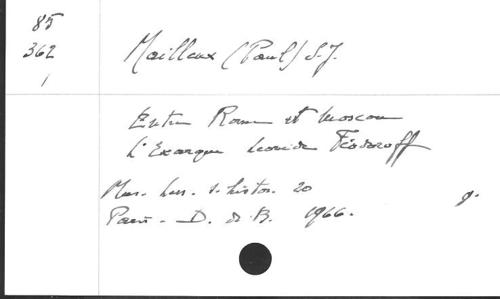 85
362
1
Mailleux (Paul) S.J.
Entre Rome et Moscou
L'Exarque Léonide Féodoroff
Mus. Less. s. histor. 20
Paris - D. d. B. 1966.
g.